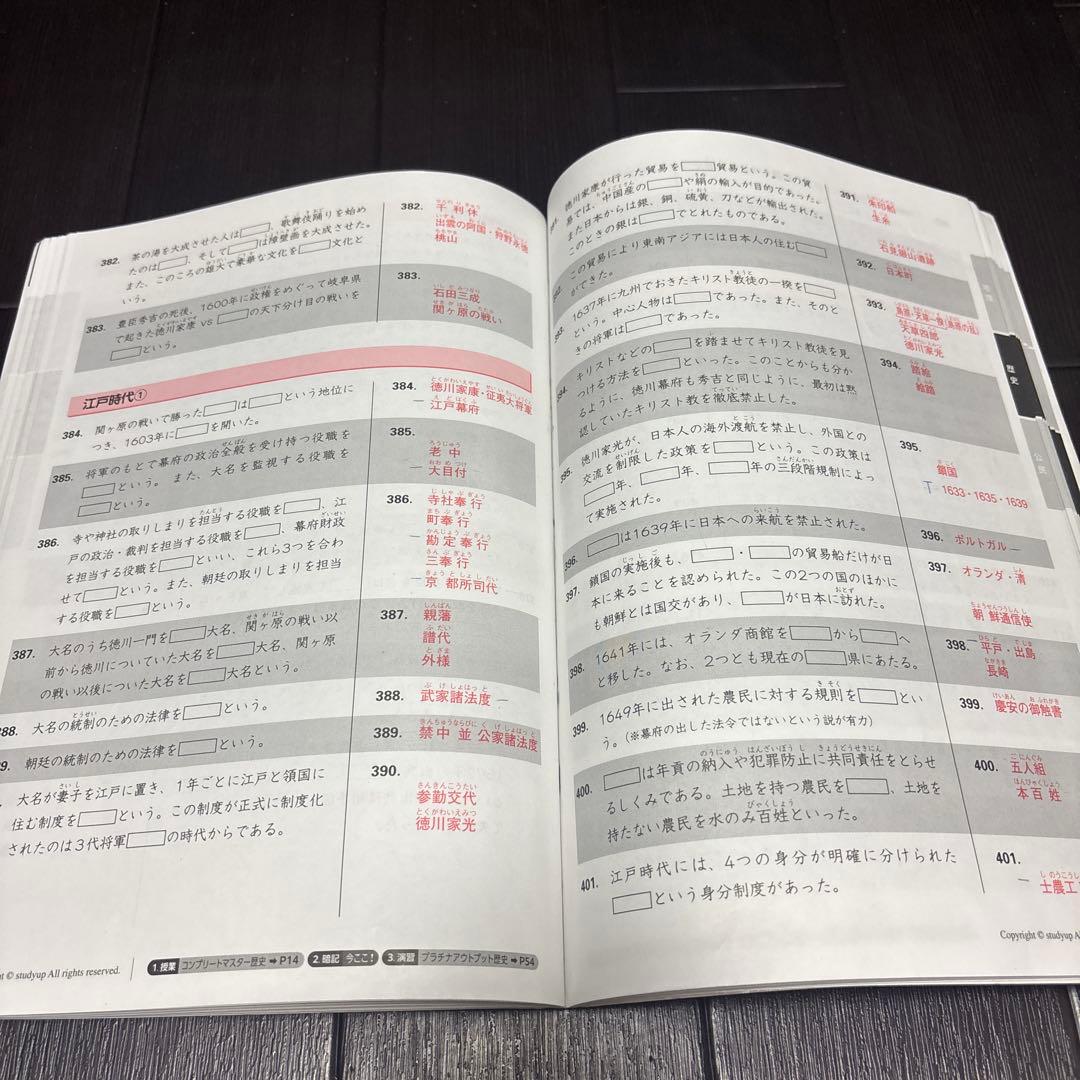 382. 茶の湯を大成させた人は□、歌舞伎踊りを始め
たのは□、そして□は障壁画を大成させた。
また、このころの雄大で豪華な文化を□文化と
いう。
382.
千利休
出雲の阿国・狩野永徳
桃山
383. 豊臣秀吉の死後、1600年に政権をめぐって岐阜県
で起きた徳川家康 vs □の天下分け目の戦いを
□という。
383.
石田三成
関ヶ原の戦い
江戸時代①
384. 関ヶ原の戦いで勝った□は□という地位に
つき、1603年に□を開いた。
384.
徳川家康・征夷大将軍
江戸幕府
385. 将軍のもとで幕府の政治全般を受け持つ役職を
□という。また、大名を監視する役職を
□という。
385.
老中
大目付
386. 寺や神社の取りしまりを担当する役職を□、江
戸の政治・裁判を担当する役職を□、幕府財政
を担当する役職を□といい、これら3つを合わ
せて□という。また、朝廷の取りしまりを担当
する役職を□という。
386.
寺社奉行
町奉行
勘定奉行
三奉行
京都所司代
387. 大名のうち徳川一門を□大名、関ヶ原の戦い以
前から徳川についていた大名を□大名、関ヶ原
の戦い以後についた大名を□大名という。
387.
親藩
譜代
外様
388. 大名の統制のための法律を□という。
388. 武家諸法度
9. 朝廷の統制のための法律を□という。
389. 禁中並公家諸法度
大名が妻子を江戸に置き、1年ごとに江戸と領国に
住む制度を□という。この制度が正式に制度化
されたのは3代将軍□の時代からである。
390.
参勤交代
徳川家光
ht © studyup All rights reserved.
1. 授業 コンプリートマスター歴史 ➡ P14
2. 暗記 今ここ！
3. 演習 プラチナアウトプット歴史 ➡ P54
徳川家康が行った貿易を□貿易という。この貿
易では、中国産の□や絹の輸入が目的であった。
また日本からは銀、銅、硫黄、刀などが輸出された。
このときの銀は□でとれたものである。
391.
朱印船
生糸
石見銀山遺跡
この貿易により東南アジアには日本人の住む□
ができた。
392. 日本町
1637年に九州でおきたキリスト教徒の一揆を□
という。中心人物は□であった。また、そのと
きの将軍は□であった。
393.
島原・天草一揆(島原の乱)
天草四郎
徳川家光
キリストなどの□を踏ませてキリスト教徒を見
つける方法を□といった。このことからも分か
るように、徳川幕府も秀吉と同じように、最初は黙
認していたキリスト教を徹底禁止した。
394.
踏絵
絵踏
395. 徳川家光が、日本人の海外渡航を禁止し、外国との
交流を制限した政策を□という。この政策は
□年、□年、□年の三段階規制によっ
て実施された。
395.
鎖国
1633・1635・1639
396. □は1639年に日本への来航を禁止された。
396. ポルトガル
397. 鎖国の実施後も、□・□の貿易船だけが日
本に来ることを認められた。この2つの国のほかに
も朝鮮とは国交があり、□が日本に訪れた。
397.
オランダ・清
朝鮮通信使
398. 1641年には、オランダ商館を□から□へ
と移した。なお、2つとも現在の□県にあたる。
398.
平戸・出島
長崎
399. 1649年に出された農民に対する規則を□とい
う。(※幕府の出した法令ではないという説が有力)
399. 慶安の御触書
400. □は年貢の納入や犯罪防止に共同責任をとらせ
るしくみである。土地を持つ農民を□、土地を
持たない農民を水のみ百姓といった。
400. 五人組
本百姓
401. 江戸時代には、4つの身分が明確に分けられた
□という身分制度があった。
401.
士農工
歴史
公民
Copyright © studyup All